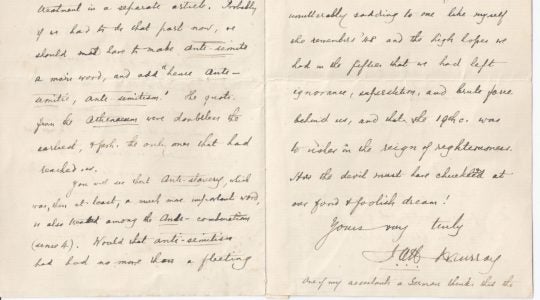 treatment in a separate article. Probably
if we had to do that part now, we
should have to make Anti-semite
a main word, and add "hence Anti-
semitic, Anti-semitism." The quots.
from the Athenaeum were doubtless the
earliest, & prob. the only ones that had
reached us.
You will see that Anti-slavery, which
was, then at least, a much more important word,
is also treated among the Anti- combinations
(sense 4.). Would that anti-semitism
had had no more than a fleeting
unutterably saddening to one like myself
who remembers '48 and the high hopes we
had in the fifties that we had left
ignorance, superstition, and brute force
behind us, and that the 19th c. was
to usher in the reign of righteousness.
How the devil must have chuckled at
our fond & foolish dream!
Yours very truly
J. A. H. Murray
One of my assistants a German thinks that the